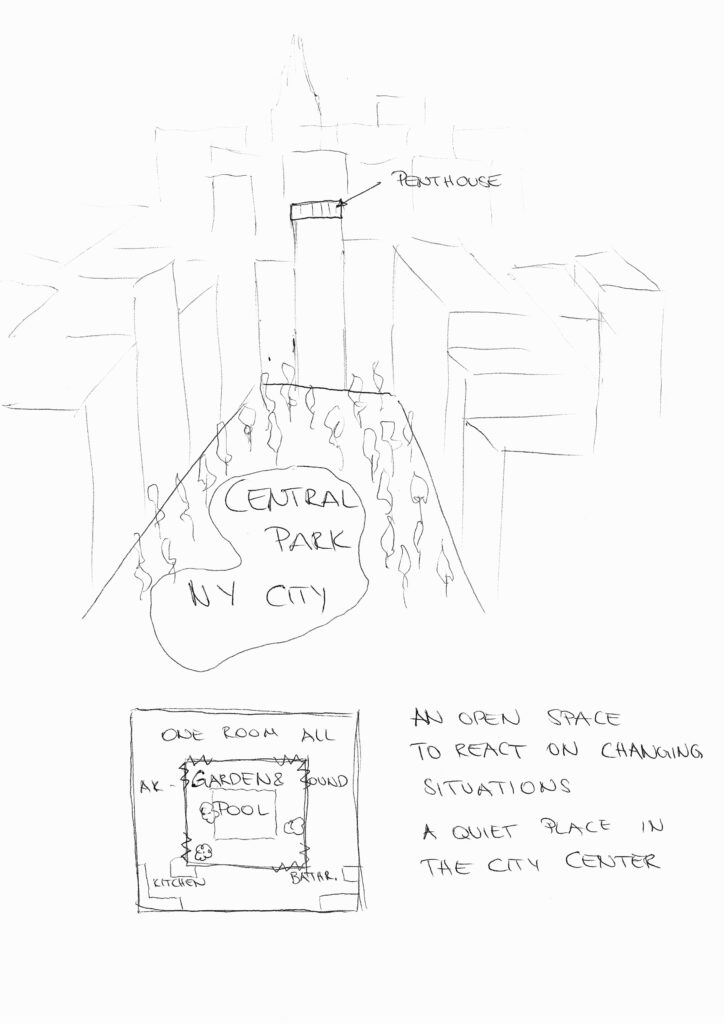 PENTHOUSE
CENTRAL
PARK
NY CITY
ONE ROOM ALL
AR-OUND
GARDEN&
POOL
KITCHEN
BATHR.
AN OPEN SPACE
TO REACT ON CHANGING
SITUATIONS
A QUIET PLACE IN
THE CITY CENTER